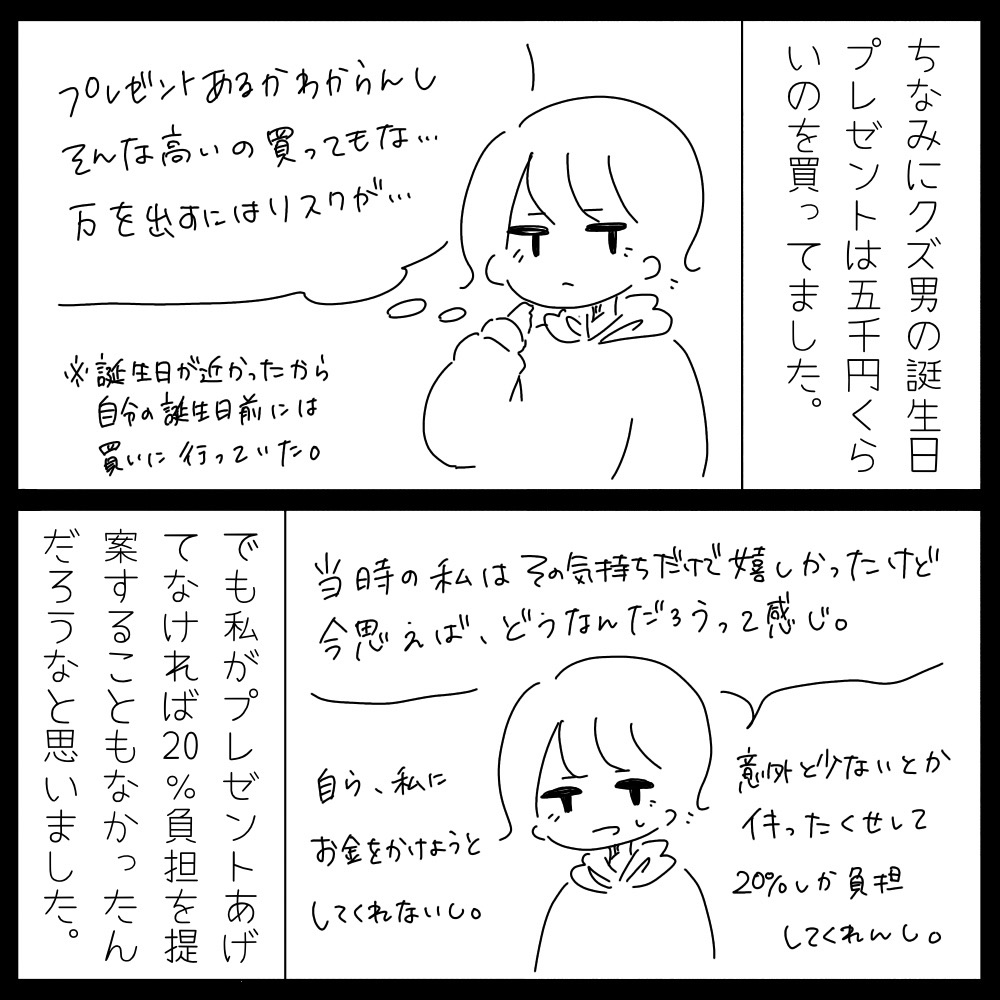 ちなみにクズ男の誕生日
プレゼントは五千円くら
いのを買ってました。
プレゼントあるかわからんし
そんな高いの買ってもな…
万を出すにはリスクが…
※誕生日が近かったから
自分の誕生日前には
買いに行っていた。
当時の私はその気持ちだけで嬉しかったけど
今思えば、どうなんだろうって感じ。
意外と少ないとか
イキったくせして
20%しか負担
してくれんし。
自ら、私に
お金をかけようと
してくれないし。
でも私がプレゼントあげ
てなければ20%負担を提
案することもなかったん
だろうなと思いました。